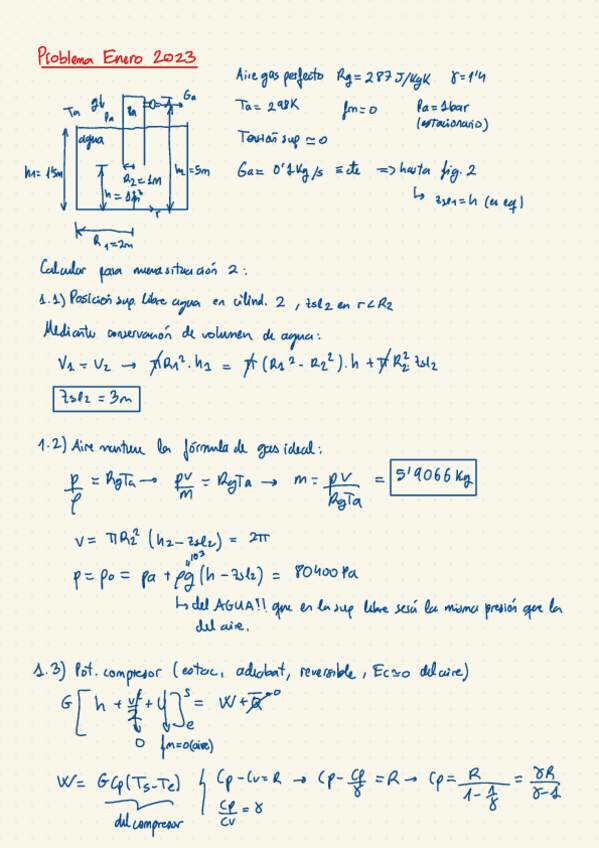 Problema Enero 2023
Aire gas perfecto Rg = 287 J/KgK γ = 1'4
Ta = 298K fm = 0 Pa = 1bar
(estacionario)
Tensión sup ≃ 0
Ga = 0'1Kg/s ≡ cte => hasta fig. 2
↳ zsl1 = h (en eq)
Ta g↓ Pa Po Ga
agua
h1 = 1'5m
h2 = 5m
R2 = 1m
h = 1m
r
R1 = 2m
Calcular para nueva situación 2:
1.1) Posición sup. libre agua en cilind. 2, zsl2 en r < R2
Mediante conservación de volumen de agua:
V1 = V2 → πR1²·h1 = π(R1² - R2²)·h + πR2² zsl2
zsl2 = 3m
1.2) Aire mantiene la fórmula de gas ideal:
p/ρ = RgTa → pV/m = RgTa → m = pV/RgTa = 5'9066 Kg
V = πR2² (h2 - zsl2) = 2π
p = po = pa + ρg (h - zsl2) = 80400 Pa
10³
↳ del AGUA!! que en la sup libre será la misma presión que la
del aire.
1.3) Pot. compresor (estac, adiabat, reversible, Ec≃0 del aire)
G [h + v²/2 + U]ₑˢ = W + Q → 0
0 fm = 0 (aire)
W = GCp(Ts - Te) { Cp - Cv = R → Cp - Cp/γ = R → Cp = R/(1 - 1/γ) = γR/(γ - 1)
Cp/Cv = γ
del compresor